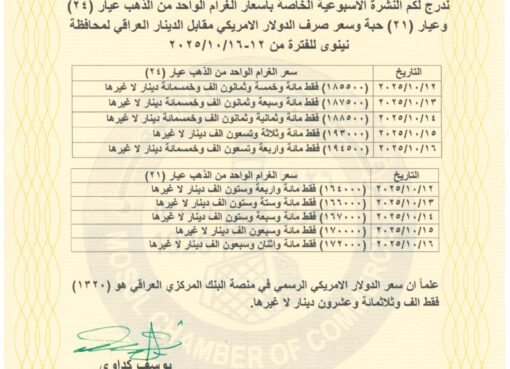 ندرج لكم النشرة الاسبوعية الخاصة بأسعار الغرام الواحد من الذهب عيار (٢٤)
وعيار (٢١) حبة وسعر صرف الدولار الامريكي مقابل الدينار العراقي لمحافظة
نينوى للفترة من ١٢-٢٠٢٥/١٠/١٦
التاريخ سعر الغرام الواحد من الذهب عيار (٢٤)
٢٠٢٥/١٠/١٢ (١٨٥٥٠٠) فقط مائة وخمسة وثمانون الف وخمسمائة دينار لا غيرها
٢٠٢٥/١٠/١٣ (١٨٧٥٠٠) فقط مائة وسبعة وثمانون الف وخمسمائة دينار لا غيرها
٢٠٢٥/١٠/١٤ (١٨٨٥٠٠) فقط مائة وثمانية وثمانون الف وخمسمائة دينار لا غيرها
٢٠٢٥/١٠/١٥ (١٩٣٠٠٠) فقط مائة وثلاثة وتسعون الف دينار لا غيرها
٢٠٢٥/١٠/١٦ (١٩٤٥٠٠) فقط مائة واربعة وتسعون الف وخمسمائة دينار لا غيرها
التاريخ سعر الغرام الواحد من الذهب عيار (٢١)
٢٠٢٥/١٠/١٢ (١٦٤٠٠٠) فقط مائة واربعة وستون الف دينار لا غيرها
٢٠٢٥/١٠/١٣ (١٦٦٠٠٠) فقط مائة وستة وستون الف دينار لا غيرها
٢٠٢٥/١٠/١٤ (١٦٧٠٠٠) فقط مائة وسبعة وستون الف دينار لا غيرها
٢٠٢٥/١٠/١٥ (١٧٠٠٠٠) فقط مائة وسبعون الف دينار لا غيرها
٢٠٢٥/١٠/١٦ (١٧٢٠٠٠) فقط مائة واثنان وسبعون الف دينار لا غيرها
علماً ان سعر الدولار الامريكي الرسمي في منصة البنك المركزي العراقي هو (١٣٢٠)
فقط الف وثلاثمائة وعشرون دينار لا غيرها.
MOSUL CHAMBER OF COMMERCE
يوسف كداوي